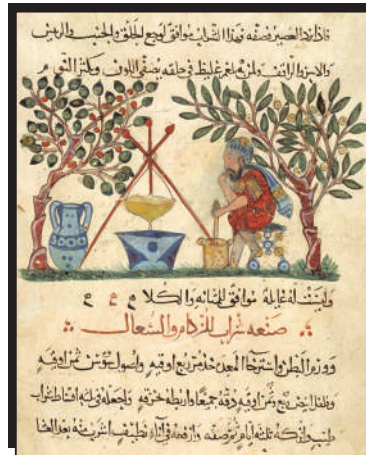 فاذا برد العصير فصفه فهذا الشراب موافق لوجع الحلق والجنب
ولمن به بلغم غليظ في حلقه يصفي اللون ويكثر النوم
وليست له غايلة موافق للمثانه والكلا
صنعه شراب للزكام والسعال
وورم البطن واسترخا المعدن خذ مر ربع اوقيه واصول سوسن ثمن اوقيه
وفلفل ابيض ربع وثمن اوقيه دقه جميعا واربطه بخرقه واجعله في ثلثه اقساط شراب
طيب واتركه ثلثه ايام ثم صفه وارفعه في اناء نظيف اشرب منه بعد العشا